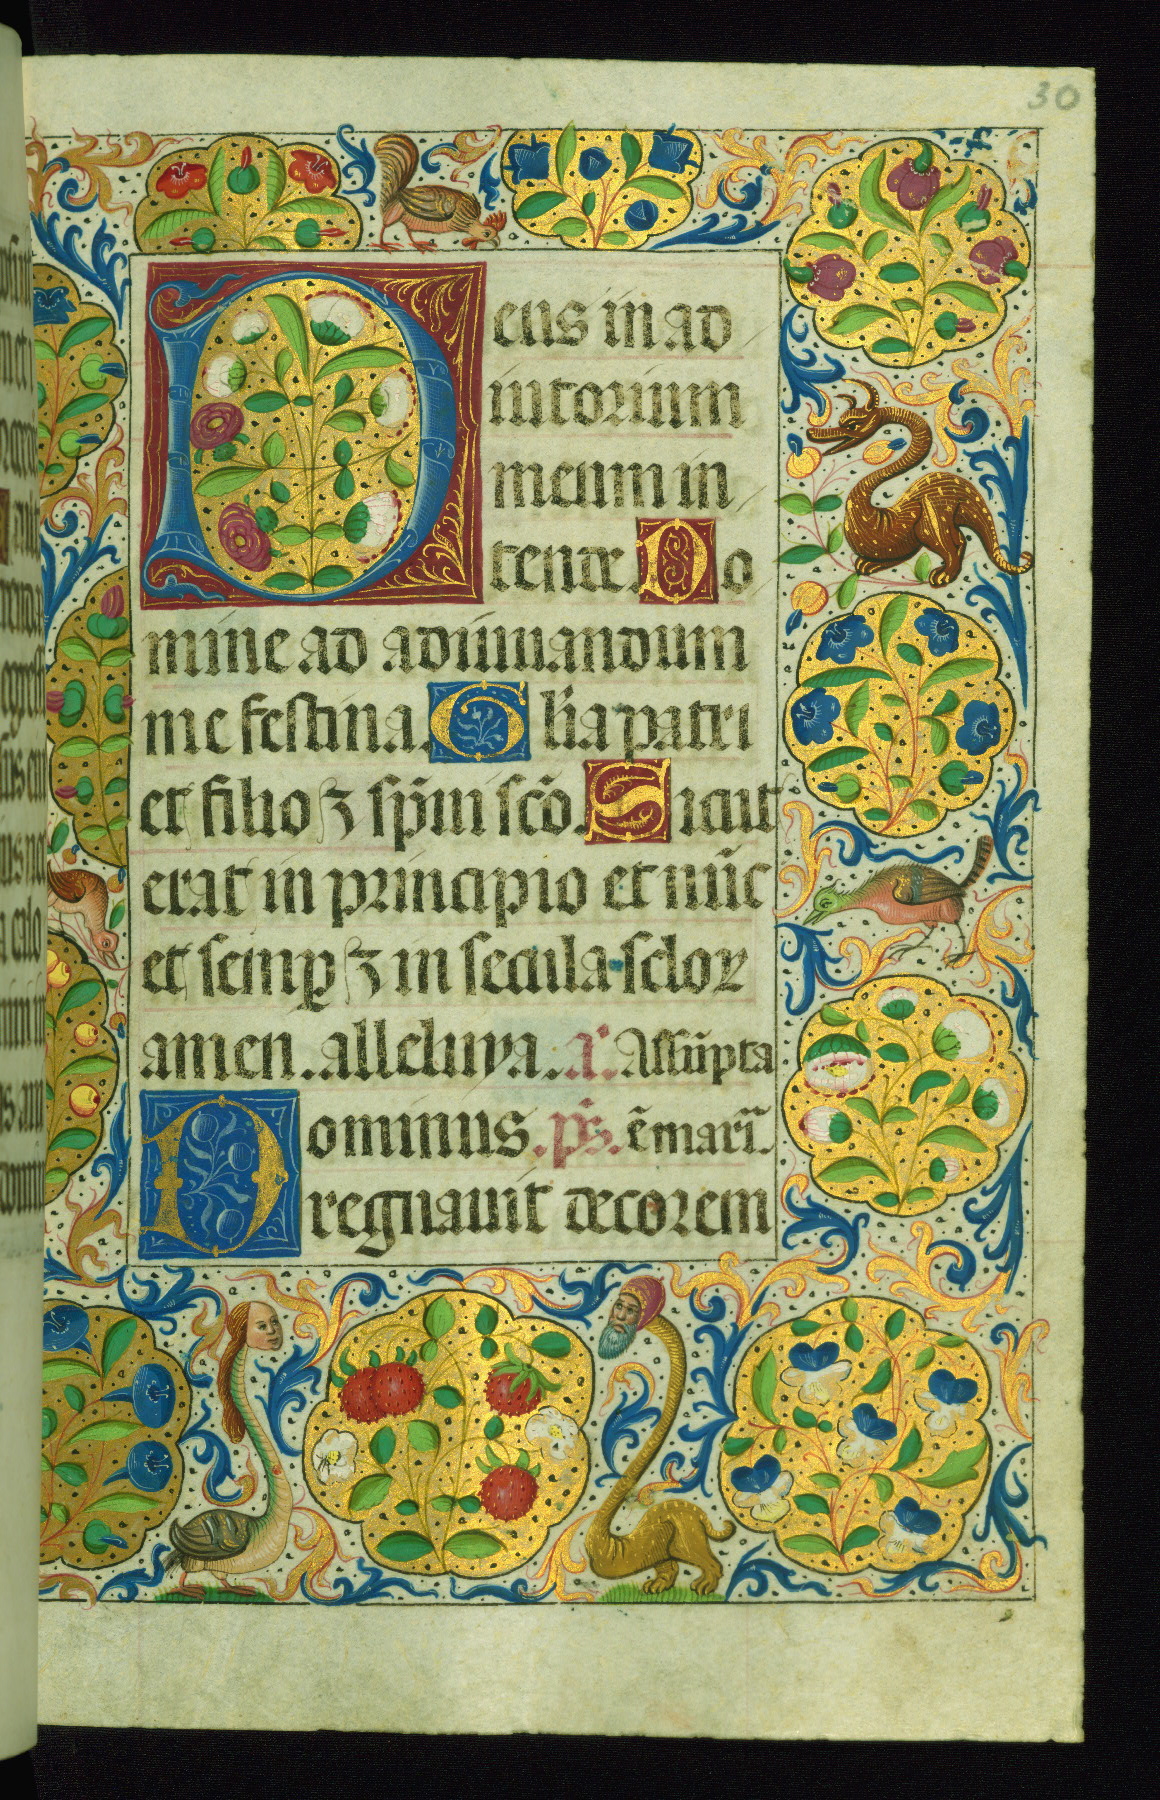 30
Deus in ad
iutorium
meum in
tende. Do
mine ad adiuuandum
me festina. Gl̄ia patri
et filio ⁊ sp̄iu sc̄o. Sicut
erat in principio et nūc
et semꝑ ⁊ in secula sclorꝝ
amen. alleluya. a͛. Assūpta
Dominus. ps̄. ē mari̅.
regnauit decorem